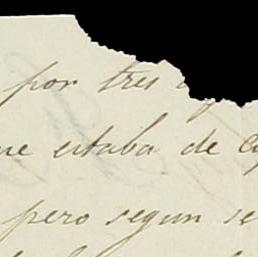 por tres
estaba de
pero segun se